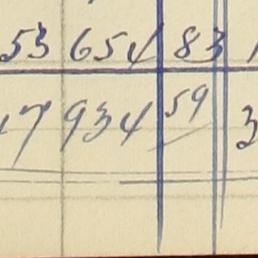 53 654 83
17 934 59 3